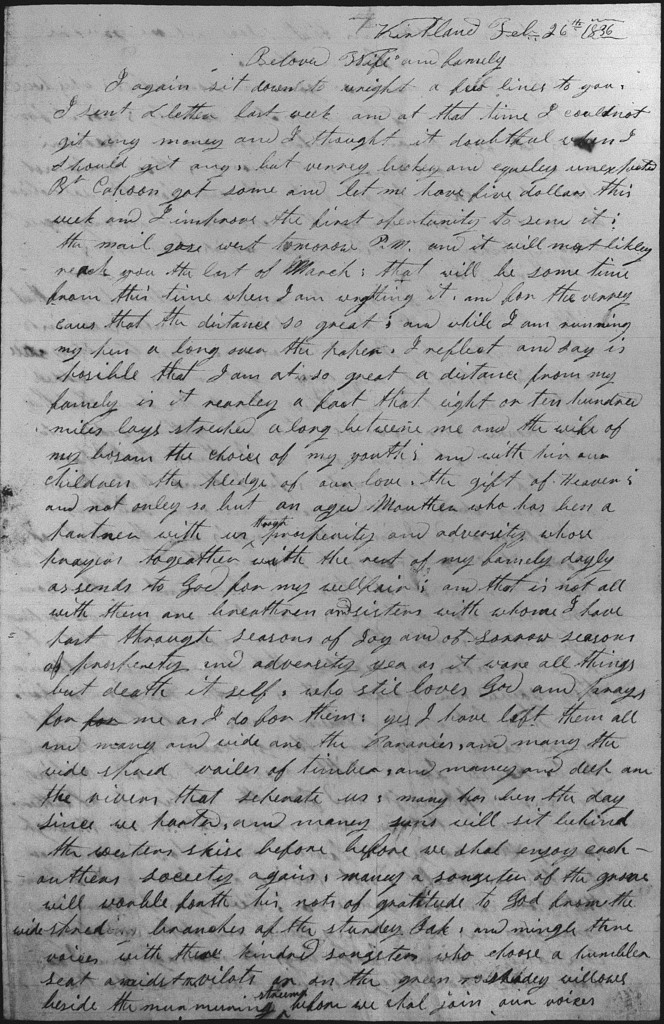 Kirtland Feb. 26th 1836
Beloved Wife and famely
I again sit down to wright a few lines to you.
I sent a letter last week and at that time I could not
git eny money and I thought it doubtful when I
should git any, but verrey luckey and equeley unexpected
Br Cahoon got some and let me have five dollars this
week and I improve the first opertunity to send it;
the mail gose west tomorow P.M. and it will most likley
reach you the last of March; that will be some time
from this time when I am wrighting it. and for the verrey
caus that the distance so great; and while I am running
my pen a long over the paper, I reflect and say is
posible that I am at so great a distance from my
famely is it realey a fact that eight or ten hundred
miles lays streched along between me and the wife of
my bosam the choice of my youth; and with hir our
children the pledge of our love. the gift of Heaven;
and not onley so but an aged Mouther who has ben a
partner with us through prosperity and adversity whose
prayers togeather with the rest of my famely dayly
assends to God for my wellfair; and that is not all
with them are breathren and sisters with whome I have
past through seasons of Joy and of sorrow seasons
of prosperety and adversity yea as it ware all things
but death it self, who stil loves God and prays
for for me as I do for them; yes I have left them all
and many and wide are the Pararies, and many the
wide spread vailes of timber, and maney and deep are
the rivers that seperate us; many has ben the day
since we parted, and maney suns will sit behind
the western skise before before we shal enjoy each-
outhers society again; maney a songster of the grove
will worble forth his nots of gratitude to God from the
wide spreding branches of the sturdey Oak; and mingle there
voices with there kindred songsters who choose a humbler
seat amidst vilots or on the green shadey willows
beside the murmuring streams before we shal join our voices